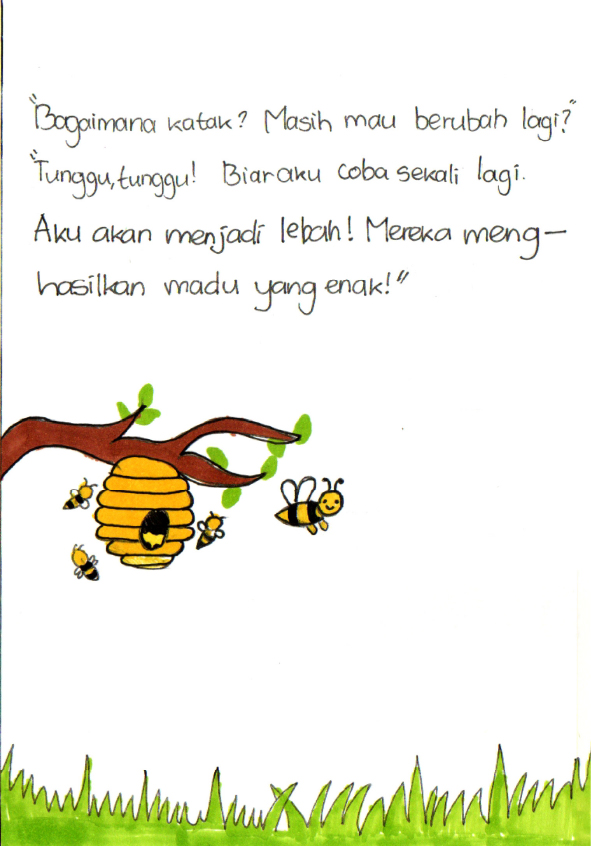 "Bagaimana katak? Masih mau berubah lagi?"
"Tunggu, tunggu! Biar aku coba sekali lagi.
Aku akan menjadi lebah! Mereka meng-
hasilkan madu yang enak!"